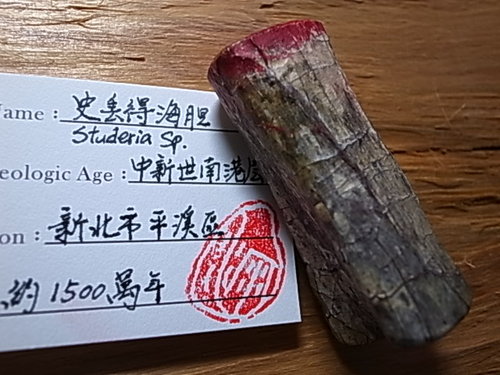 ame : 史丟得海胆
Studeria Sp.
eologic Age : 中新世南港层
on : 新北市平溪區
約1500萬年